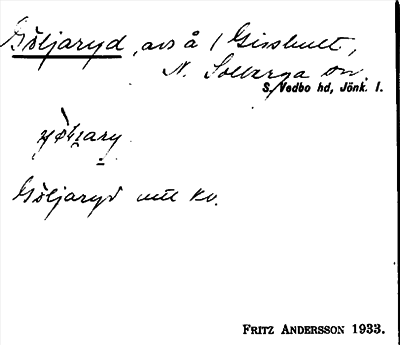 Göljaryd, avs å Gisshult,
N. Solberga sn.
S. Vedbo hd, Jönk. l.
Göljaryd mtl kv.
FRITZ ANDERSSON 1933.